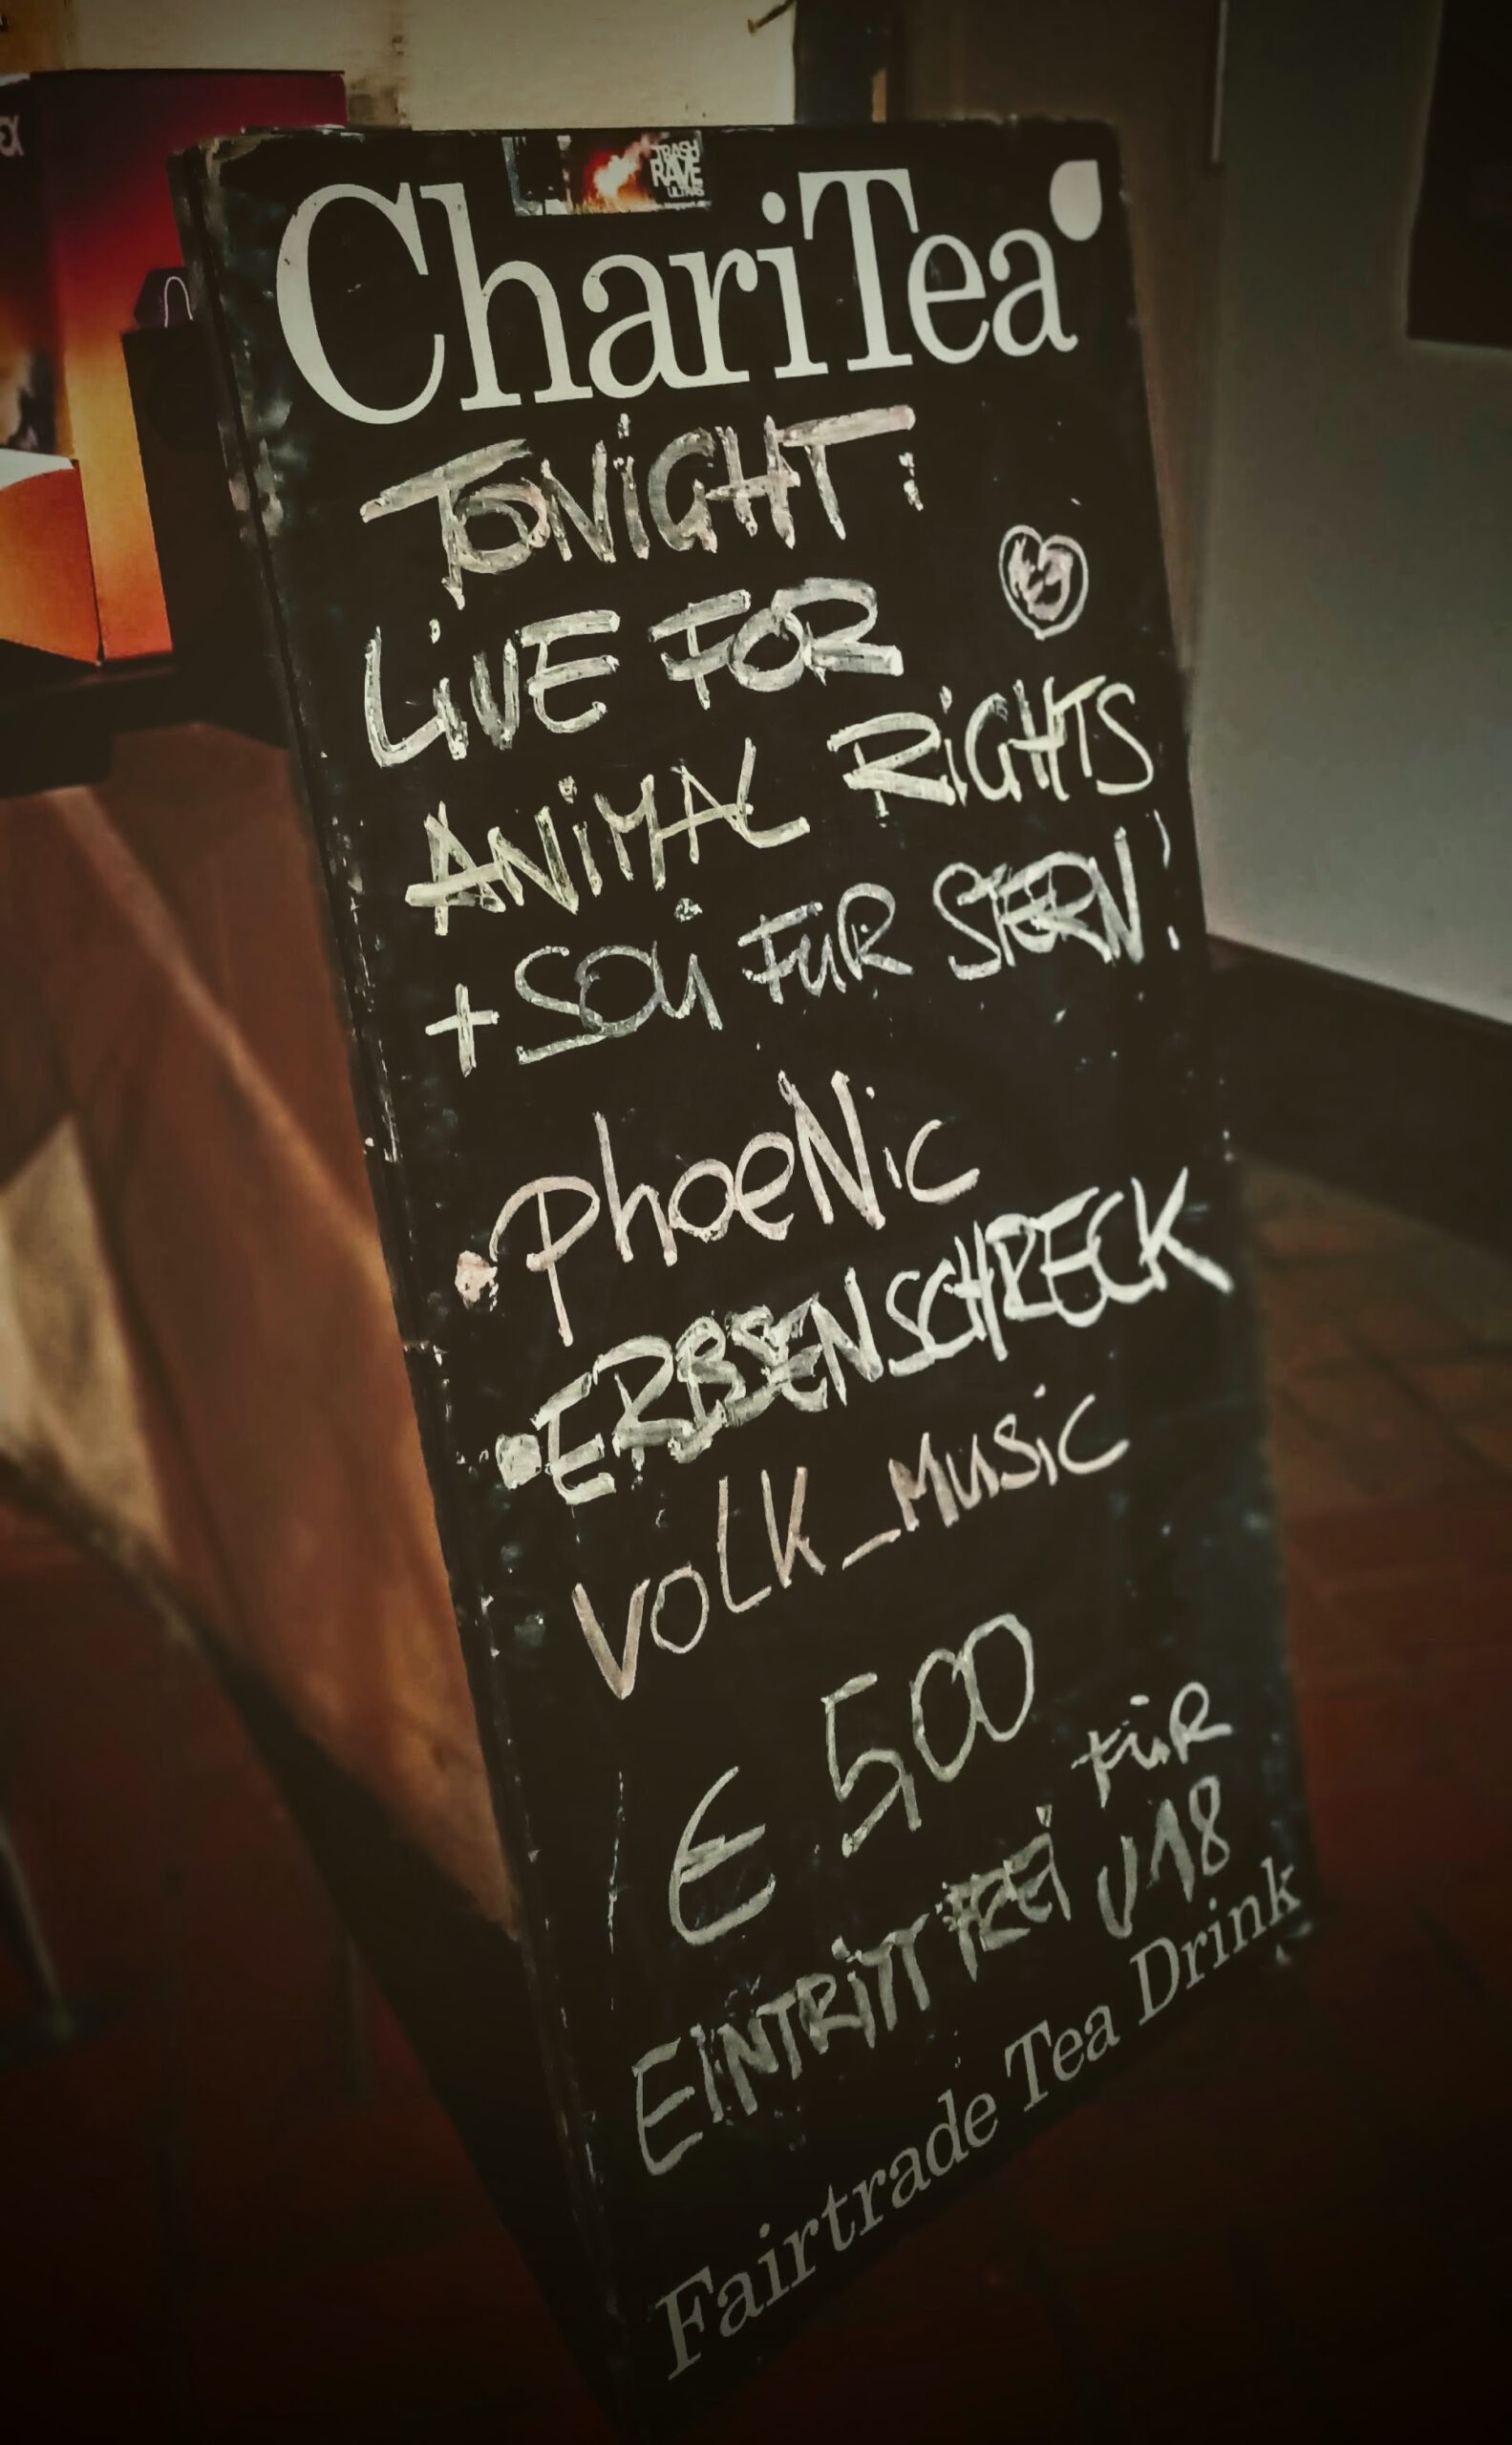 TRASH
RAVE
ULTRAS
ChariTea
TONiGHT:
LiVE FOR
ANiMAL RiGHTS
+ SOLi FuR STERN!
• PhoeNic
• ERBSENSCHRECK
VOLK_MUSiC
€ 5,00
EiNTRiTT FREi FüR
U18
Fairtrade Tea Drink